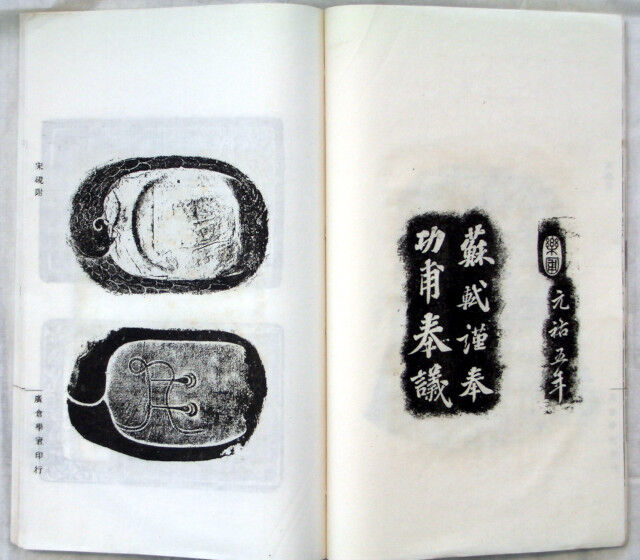 樂圃
元祐五年
蘇軾謹奉
功甫奉議
宋硯附
廣倉學宭印行